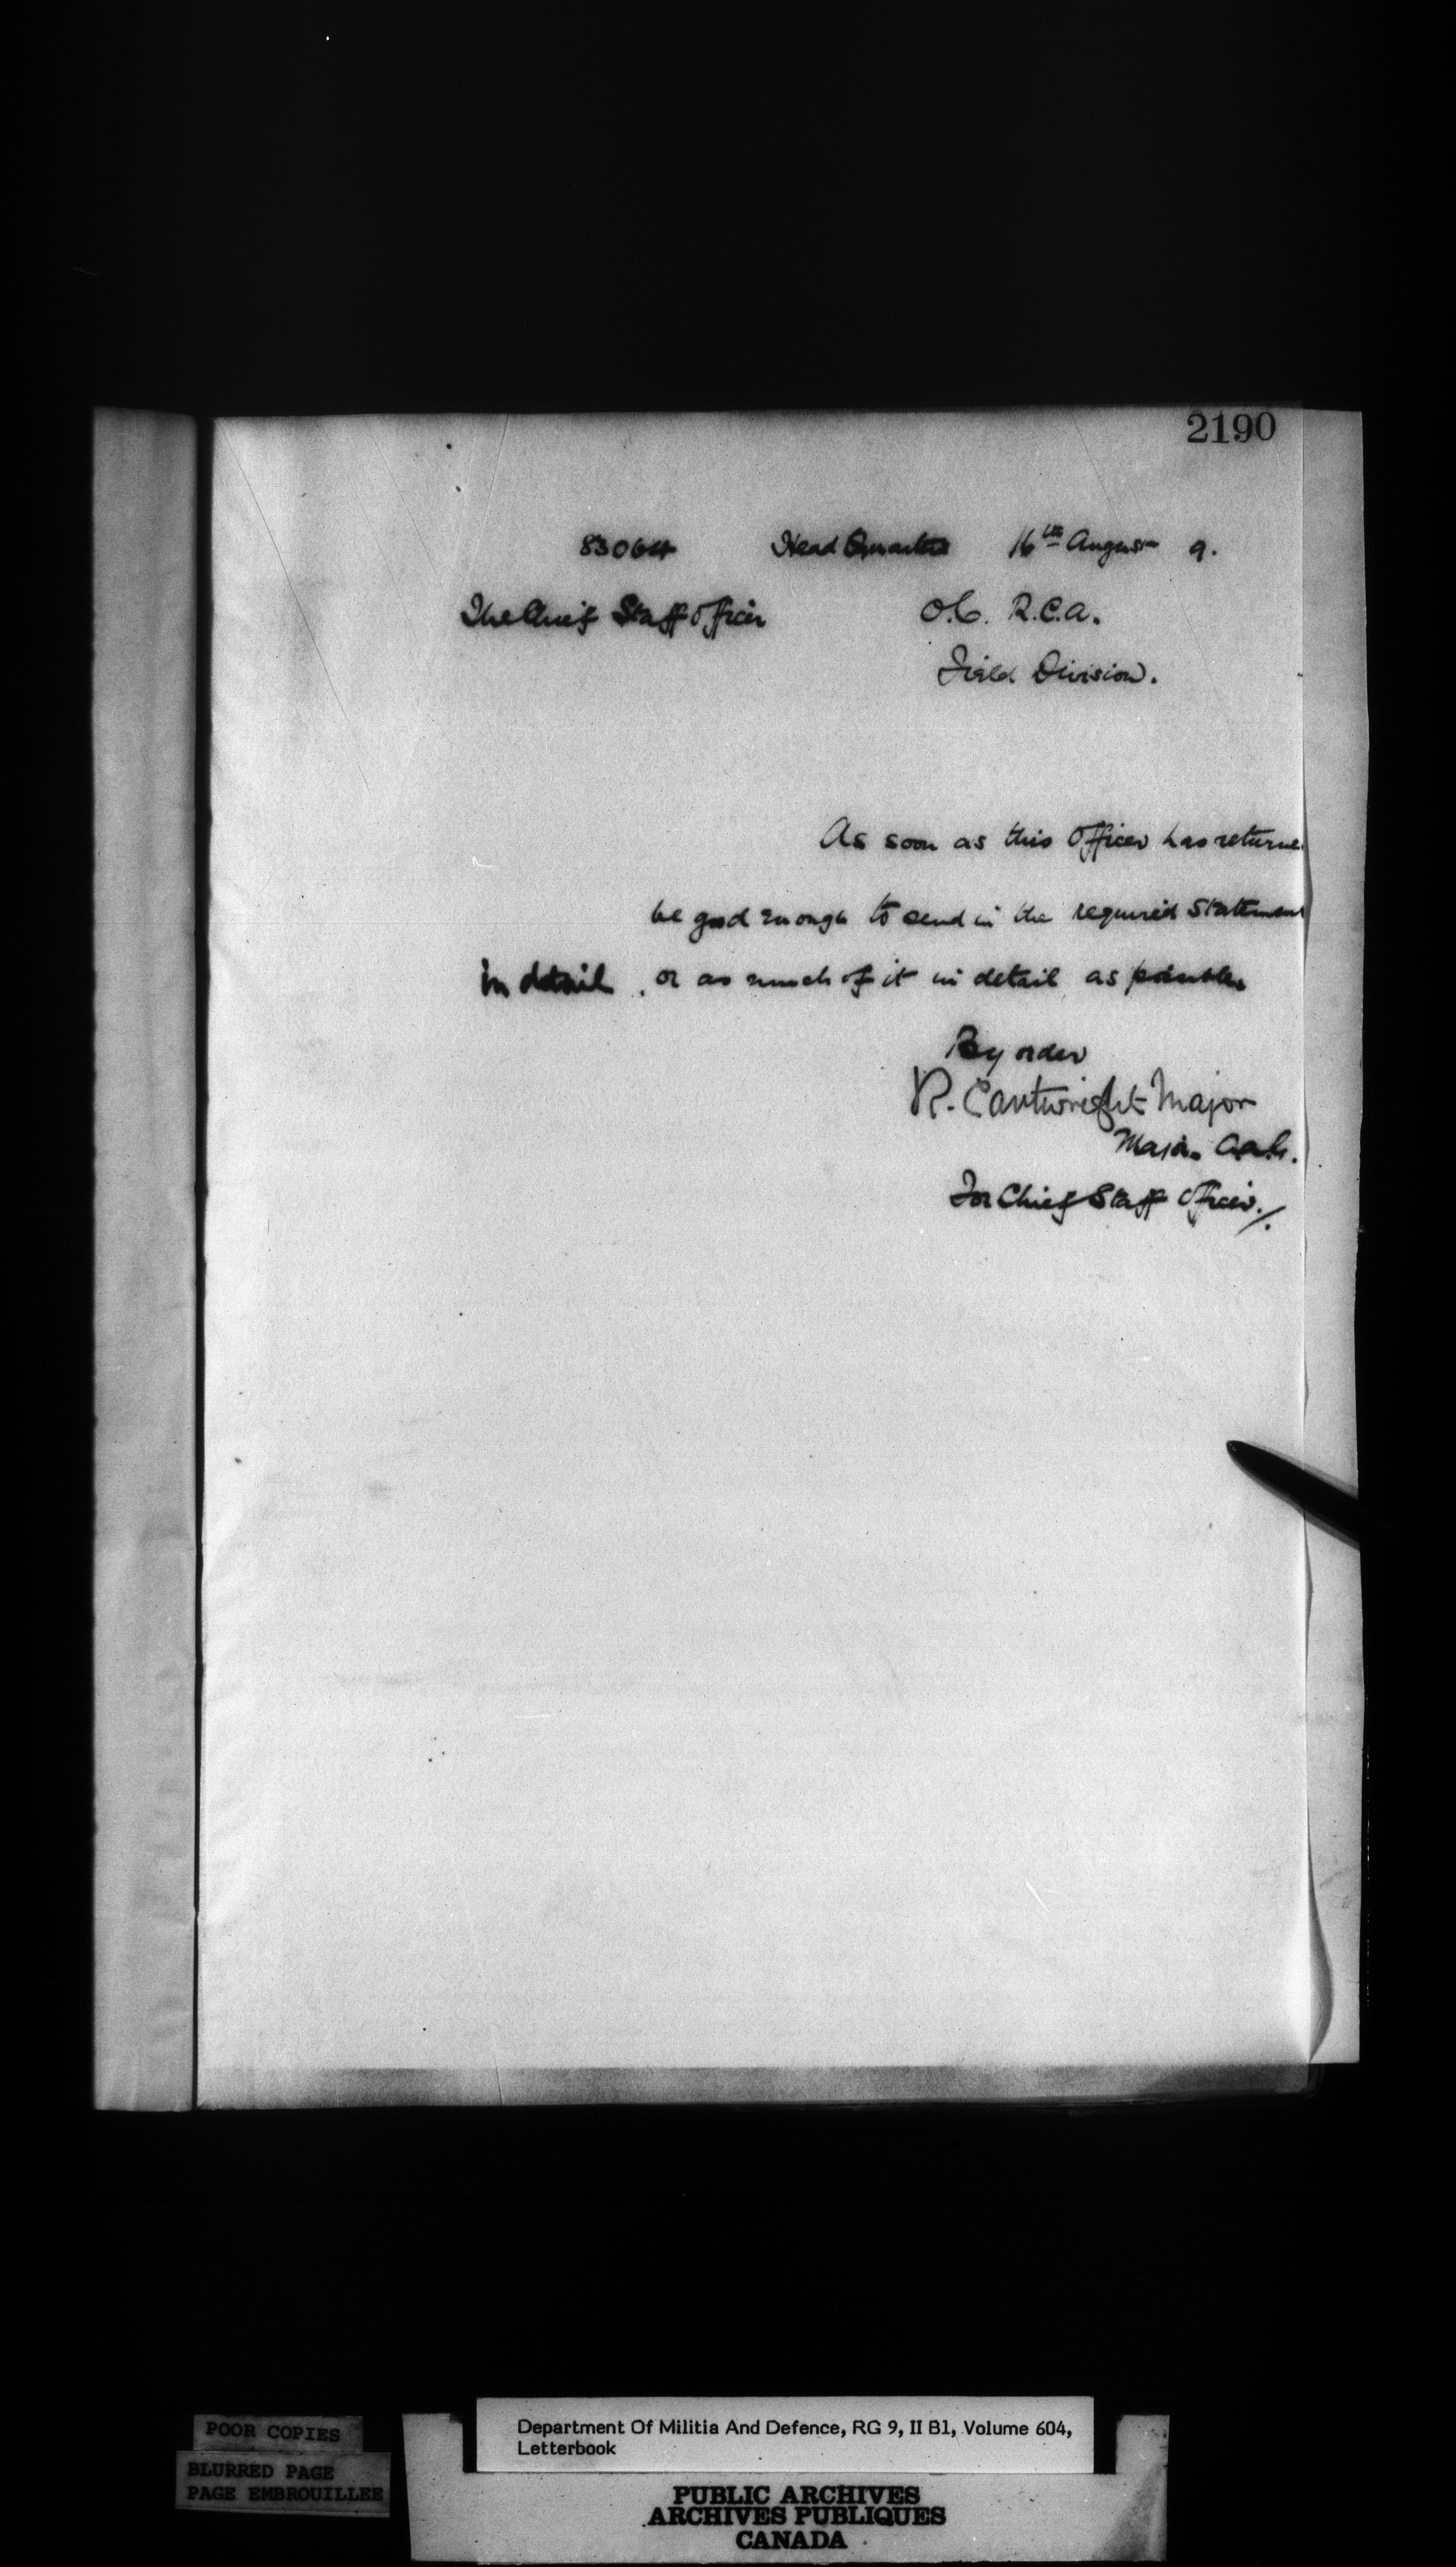 2190
83064 Head Quarters 16th August 9.
The Chief Staff Officer O.C. R.C.A.
Field Division.
As soon as this Officer has returne
be good enough to send in the required Statement
in detail, or as much of it in detail as possible
By order
R. Cartwright Major
Major A.A.G.
For Chief Staff Officer.
POOR COPIES
BLURRED PAGE
PAGE EMBROUILLEE
Department Of Militia And Defence, RG 9, II B1, Volume 604,
Letterbook
PUBLIC ARCHIVES
ARCHIVES PUBLIQUES
CANADA